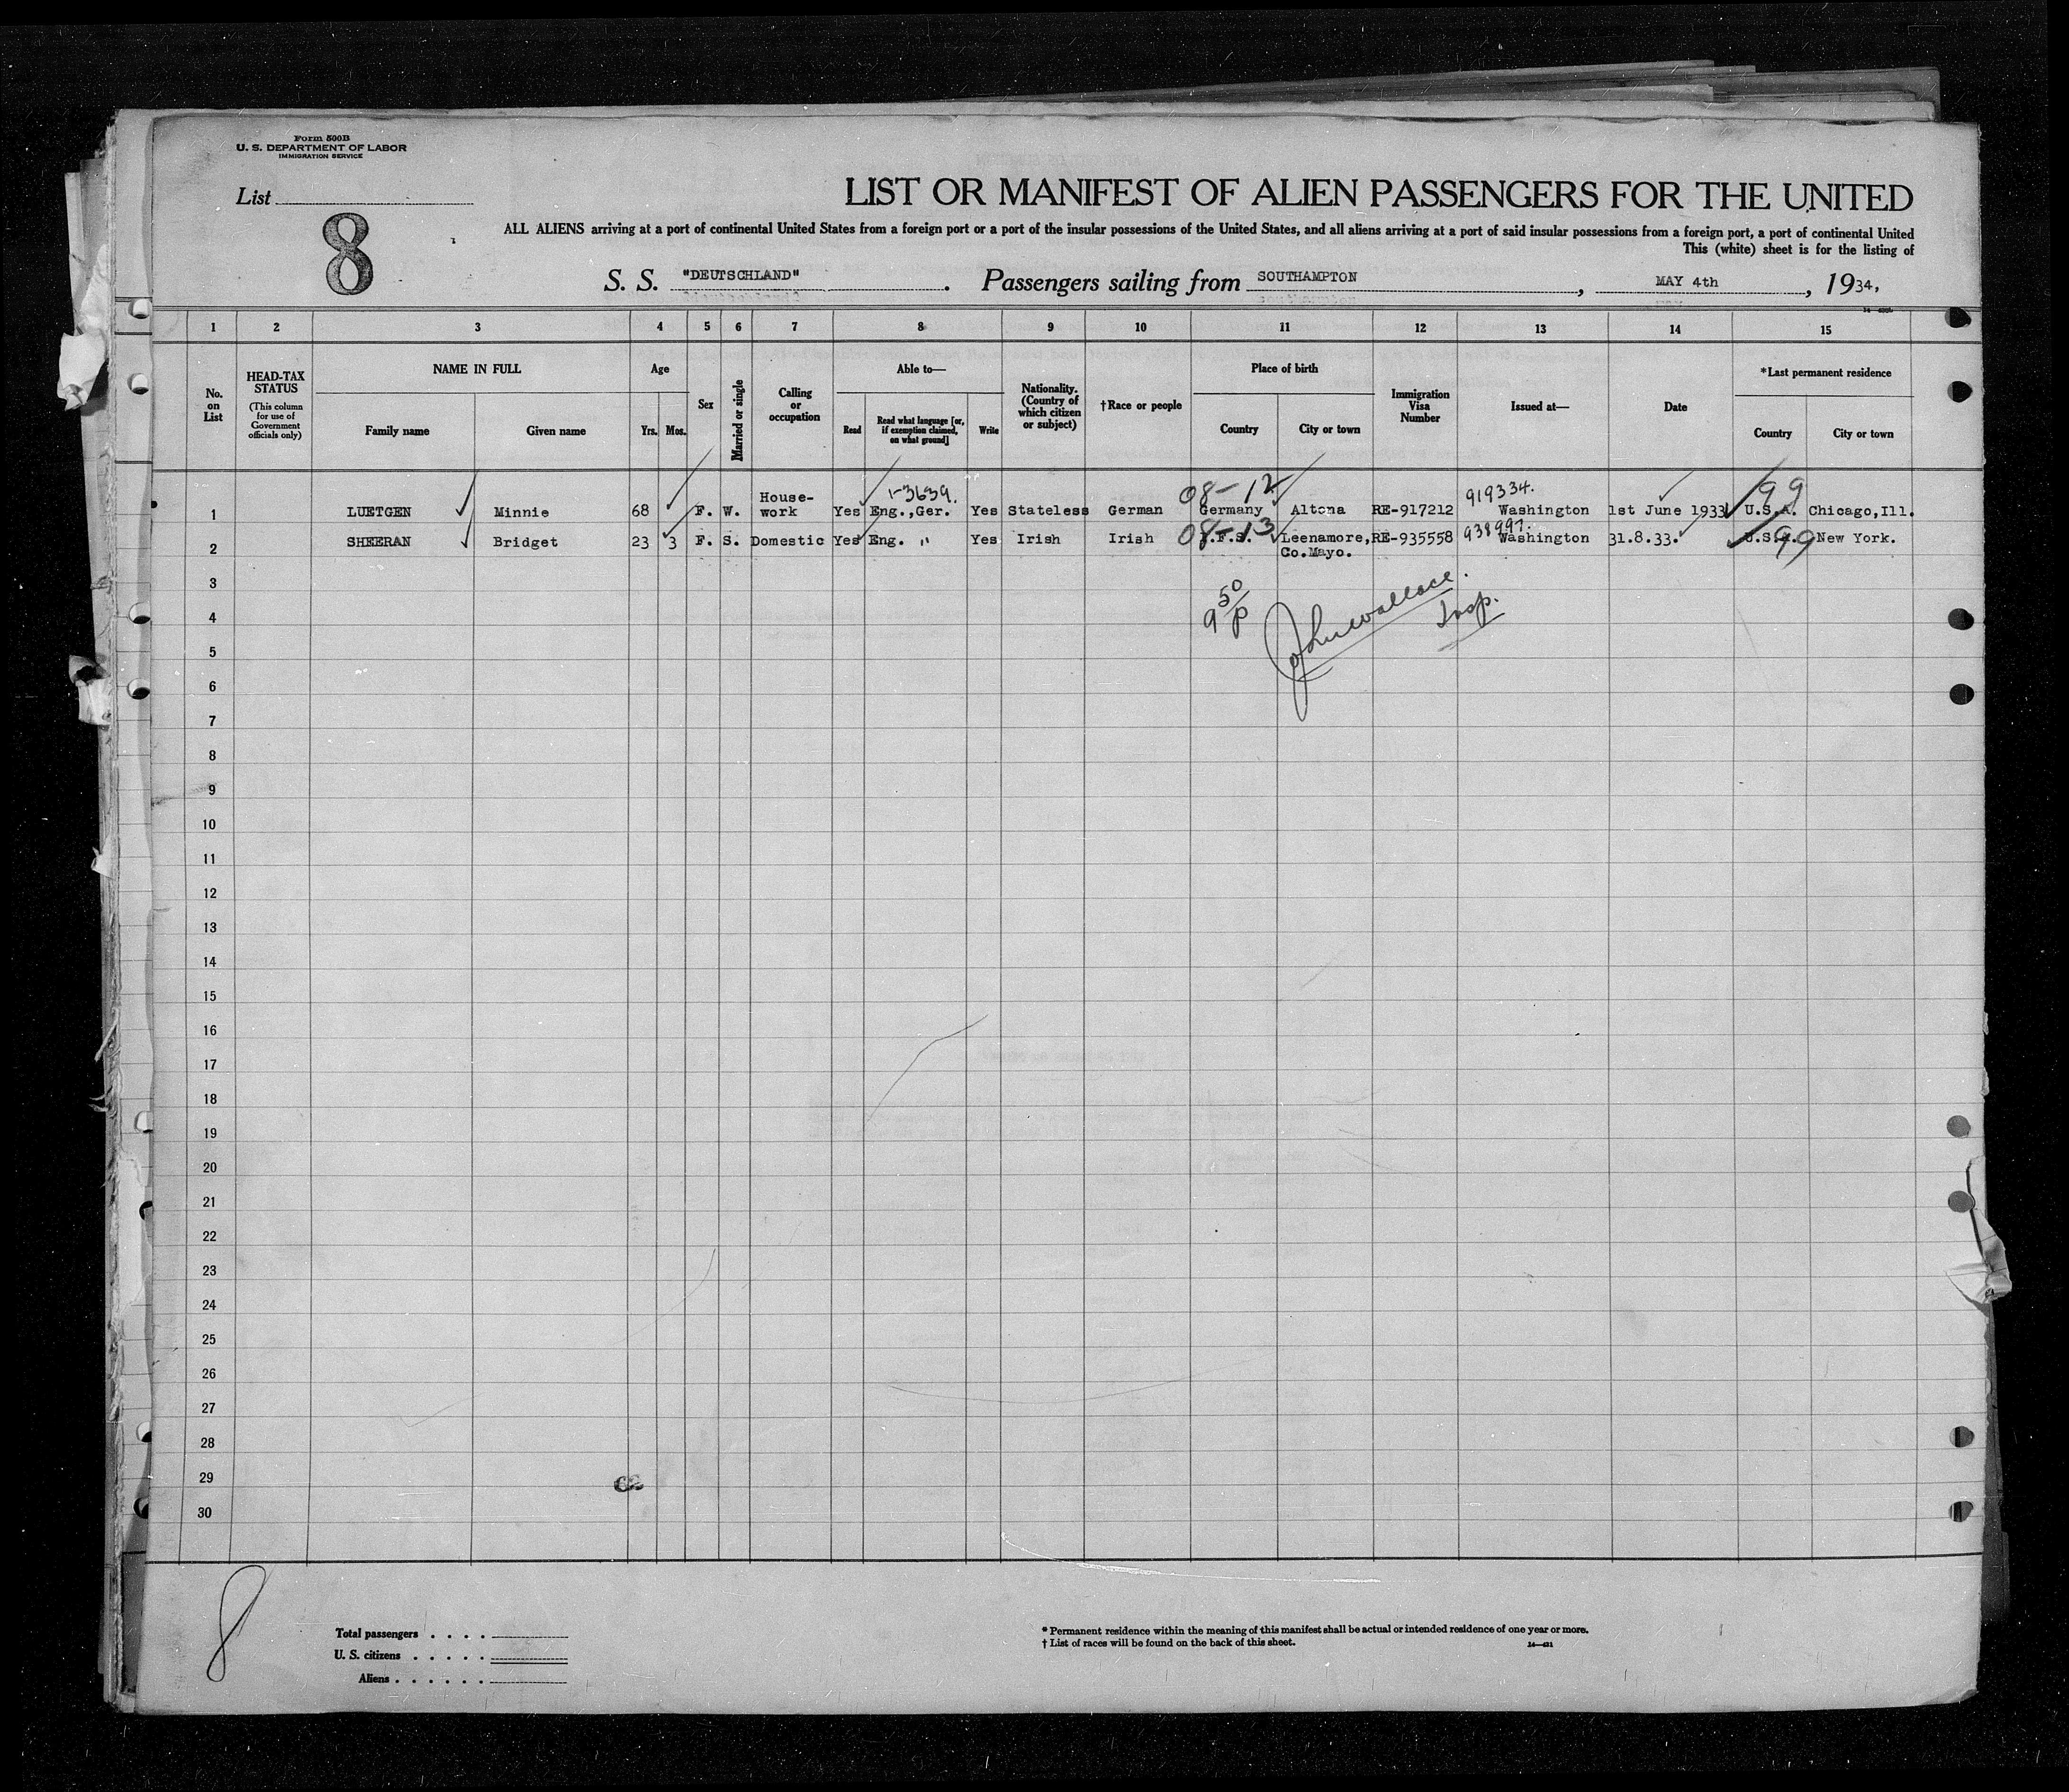 Form 500B
U. S. DEPARTMENT OF LABOR
IMMIGRATION SERVICE
List
8
LIST OR MANIFEST OF ALIEN PASSENGERS FOR THE UNITED
ALL ALIENS arriving at a port of continental United States from a foreign port or a port of the insular possessions of the United States, and all aliens arriving at a port of said insular possessions from a foreign port, a port of continental United
This (white) sheet is for the listing of
S. S. "DEUTSCHLAND". Passengers sailing from SOUTHAMPTON, MAY 4th, 1934,
1 2 3 4 5 6 7 8 9 10 11 12 13 14 15
No. on List
HEAD-TAX STATUS
(This column for use of Government officials only)
NAME IN FULL
Family name Given name
Age
Yrs. Mos.
Sex
Married or single
Calling or occupation
Able to—
Read
Read what language [or, if exemption claimed, on what ground]
Write
Nationality. (Country of which citizen or subject)
†Race or people
Place of birth
Country City or town
Immigration Visa Number
Issued at—
Date
*Last permanent residence
Country City or town
1-3639. 08-12 919334. 99
1 LUETGEN Minnie 68 F. W. House-work Yes Eng.,Ger. Yes Stateless German Germany Altona RE-917212 Washington 1st June 1933 U.S.A. Chicago,Ill.
08-13 938997. 99
2 SHEERAN Bridget 23 3 F. S. Domestic Yes Eng. " Yes Irish Irish I.F.S. Leenamore, Co.Mayo. RE-935558 Washington 31.8.33. U.S.A. New York.
3
9 50/P John Wallace. Insp.
4
5
6
7
8
9
10
11
12
13
14
15
16
17
18
19
20
21
22
23
24
25
26
27
28
29
30
8
Total passengers . . . .
U. S. citizens . . . . .
Aliens . . . . . .
* Permanent residence within the meaning of this manifest shall be actual or intended residence of one year or more.
† List of races will be found on the back of this sheet.